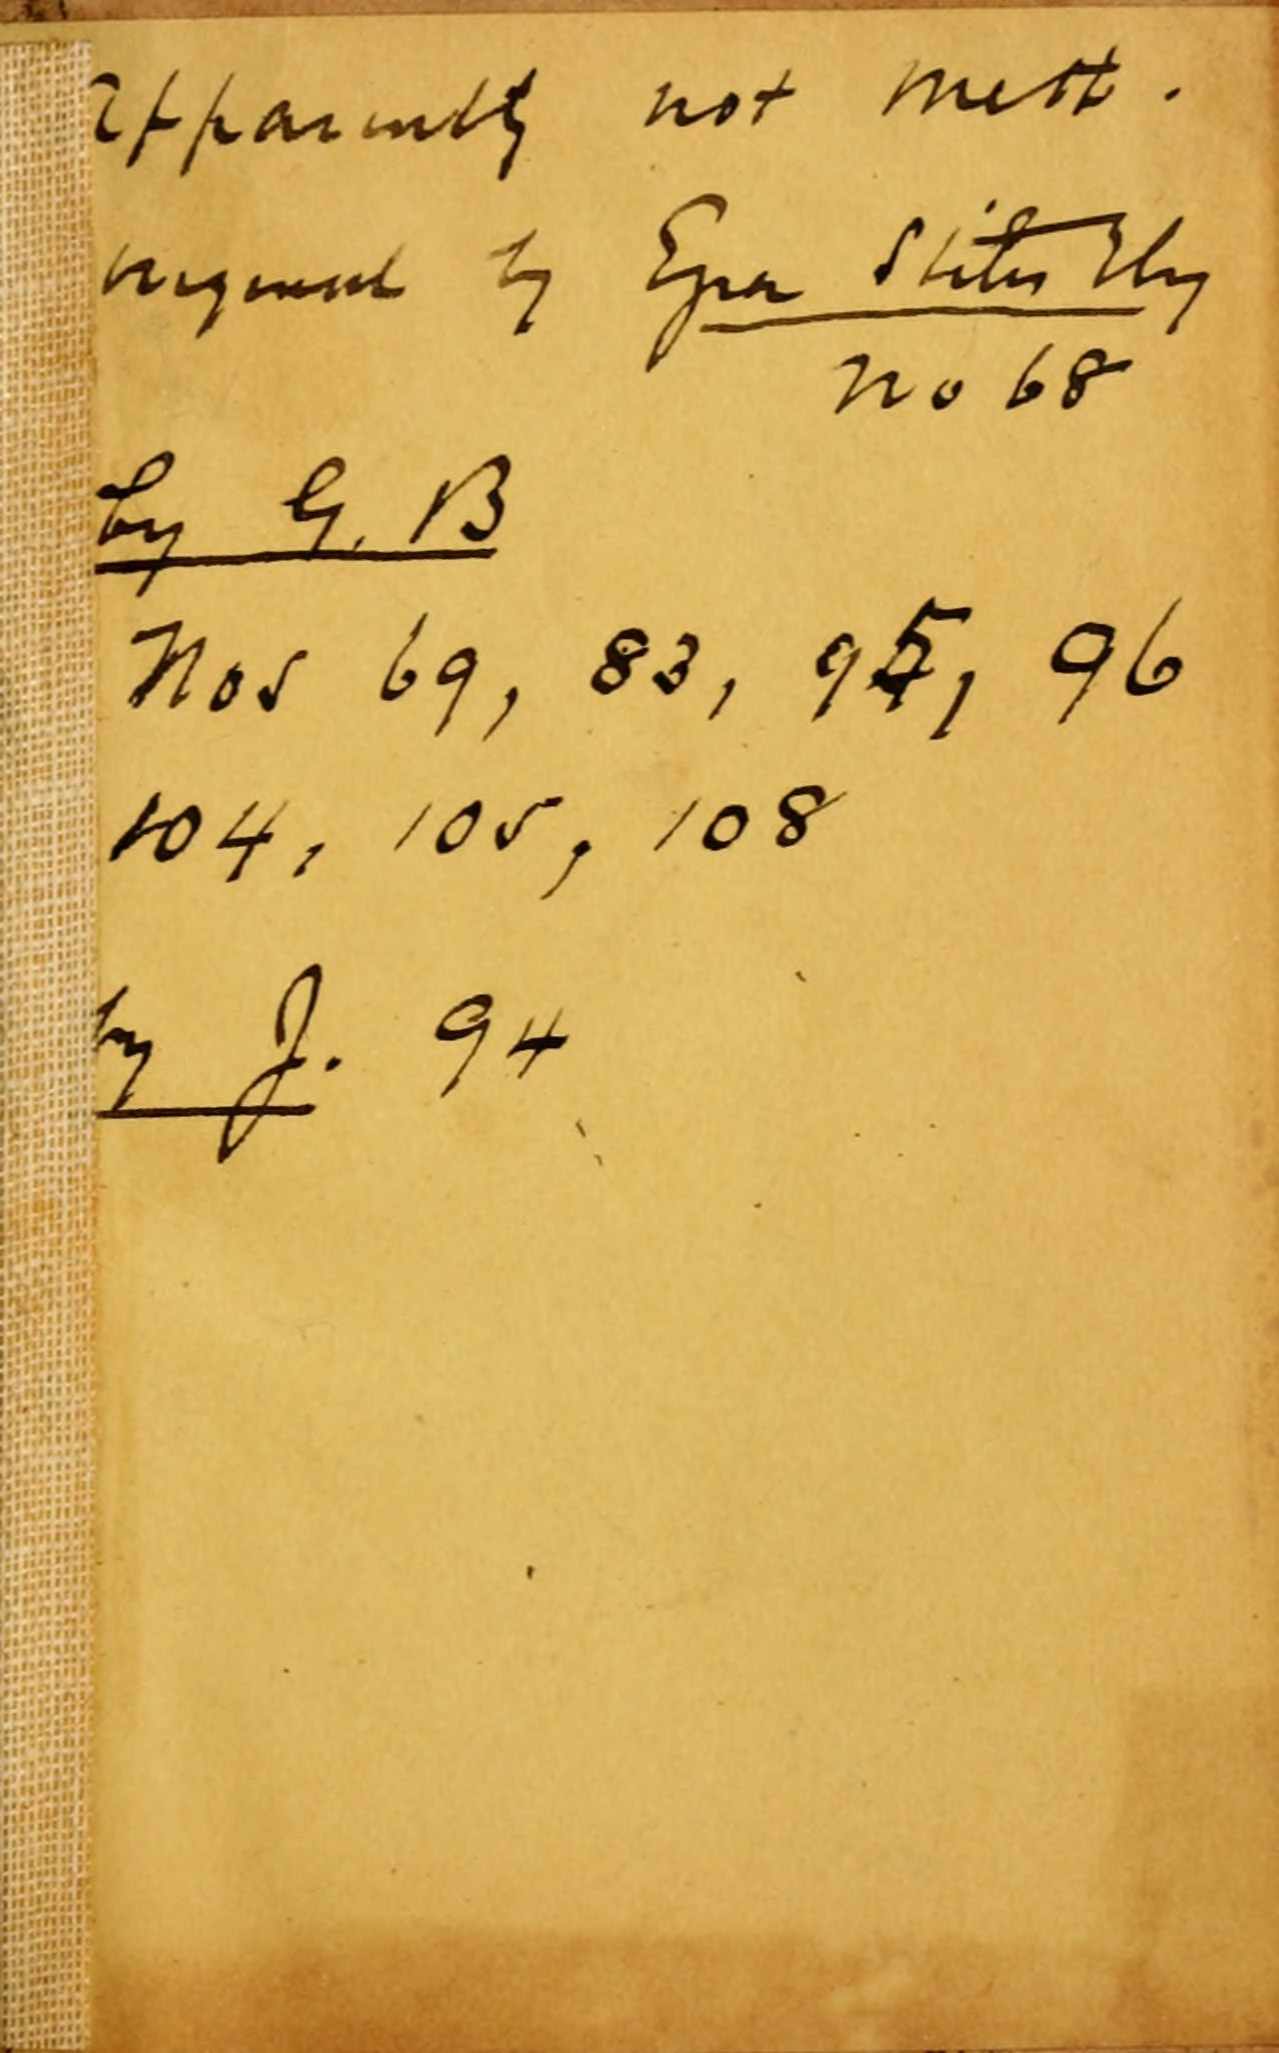 Apparently not Mett.
original by Ezra Stiles Ely
No 68
by G. B
Nos 69, 83, 95, 96
104, 105, 108
by J. 94